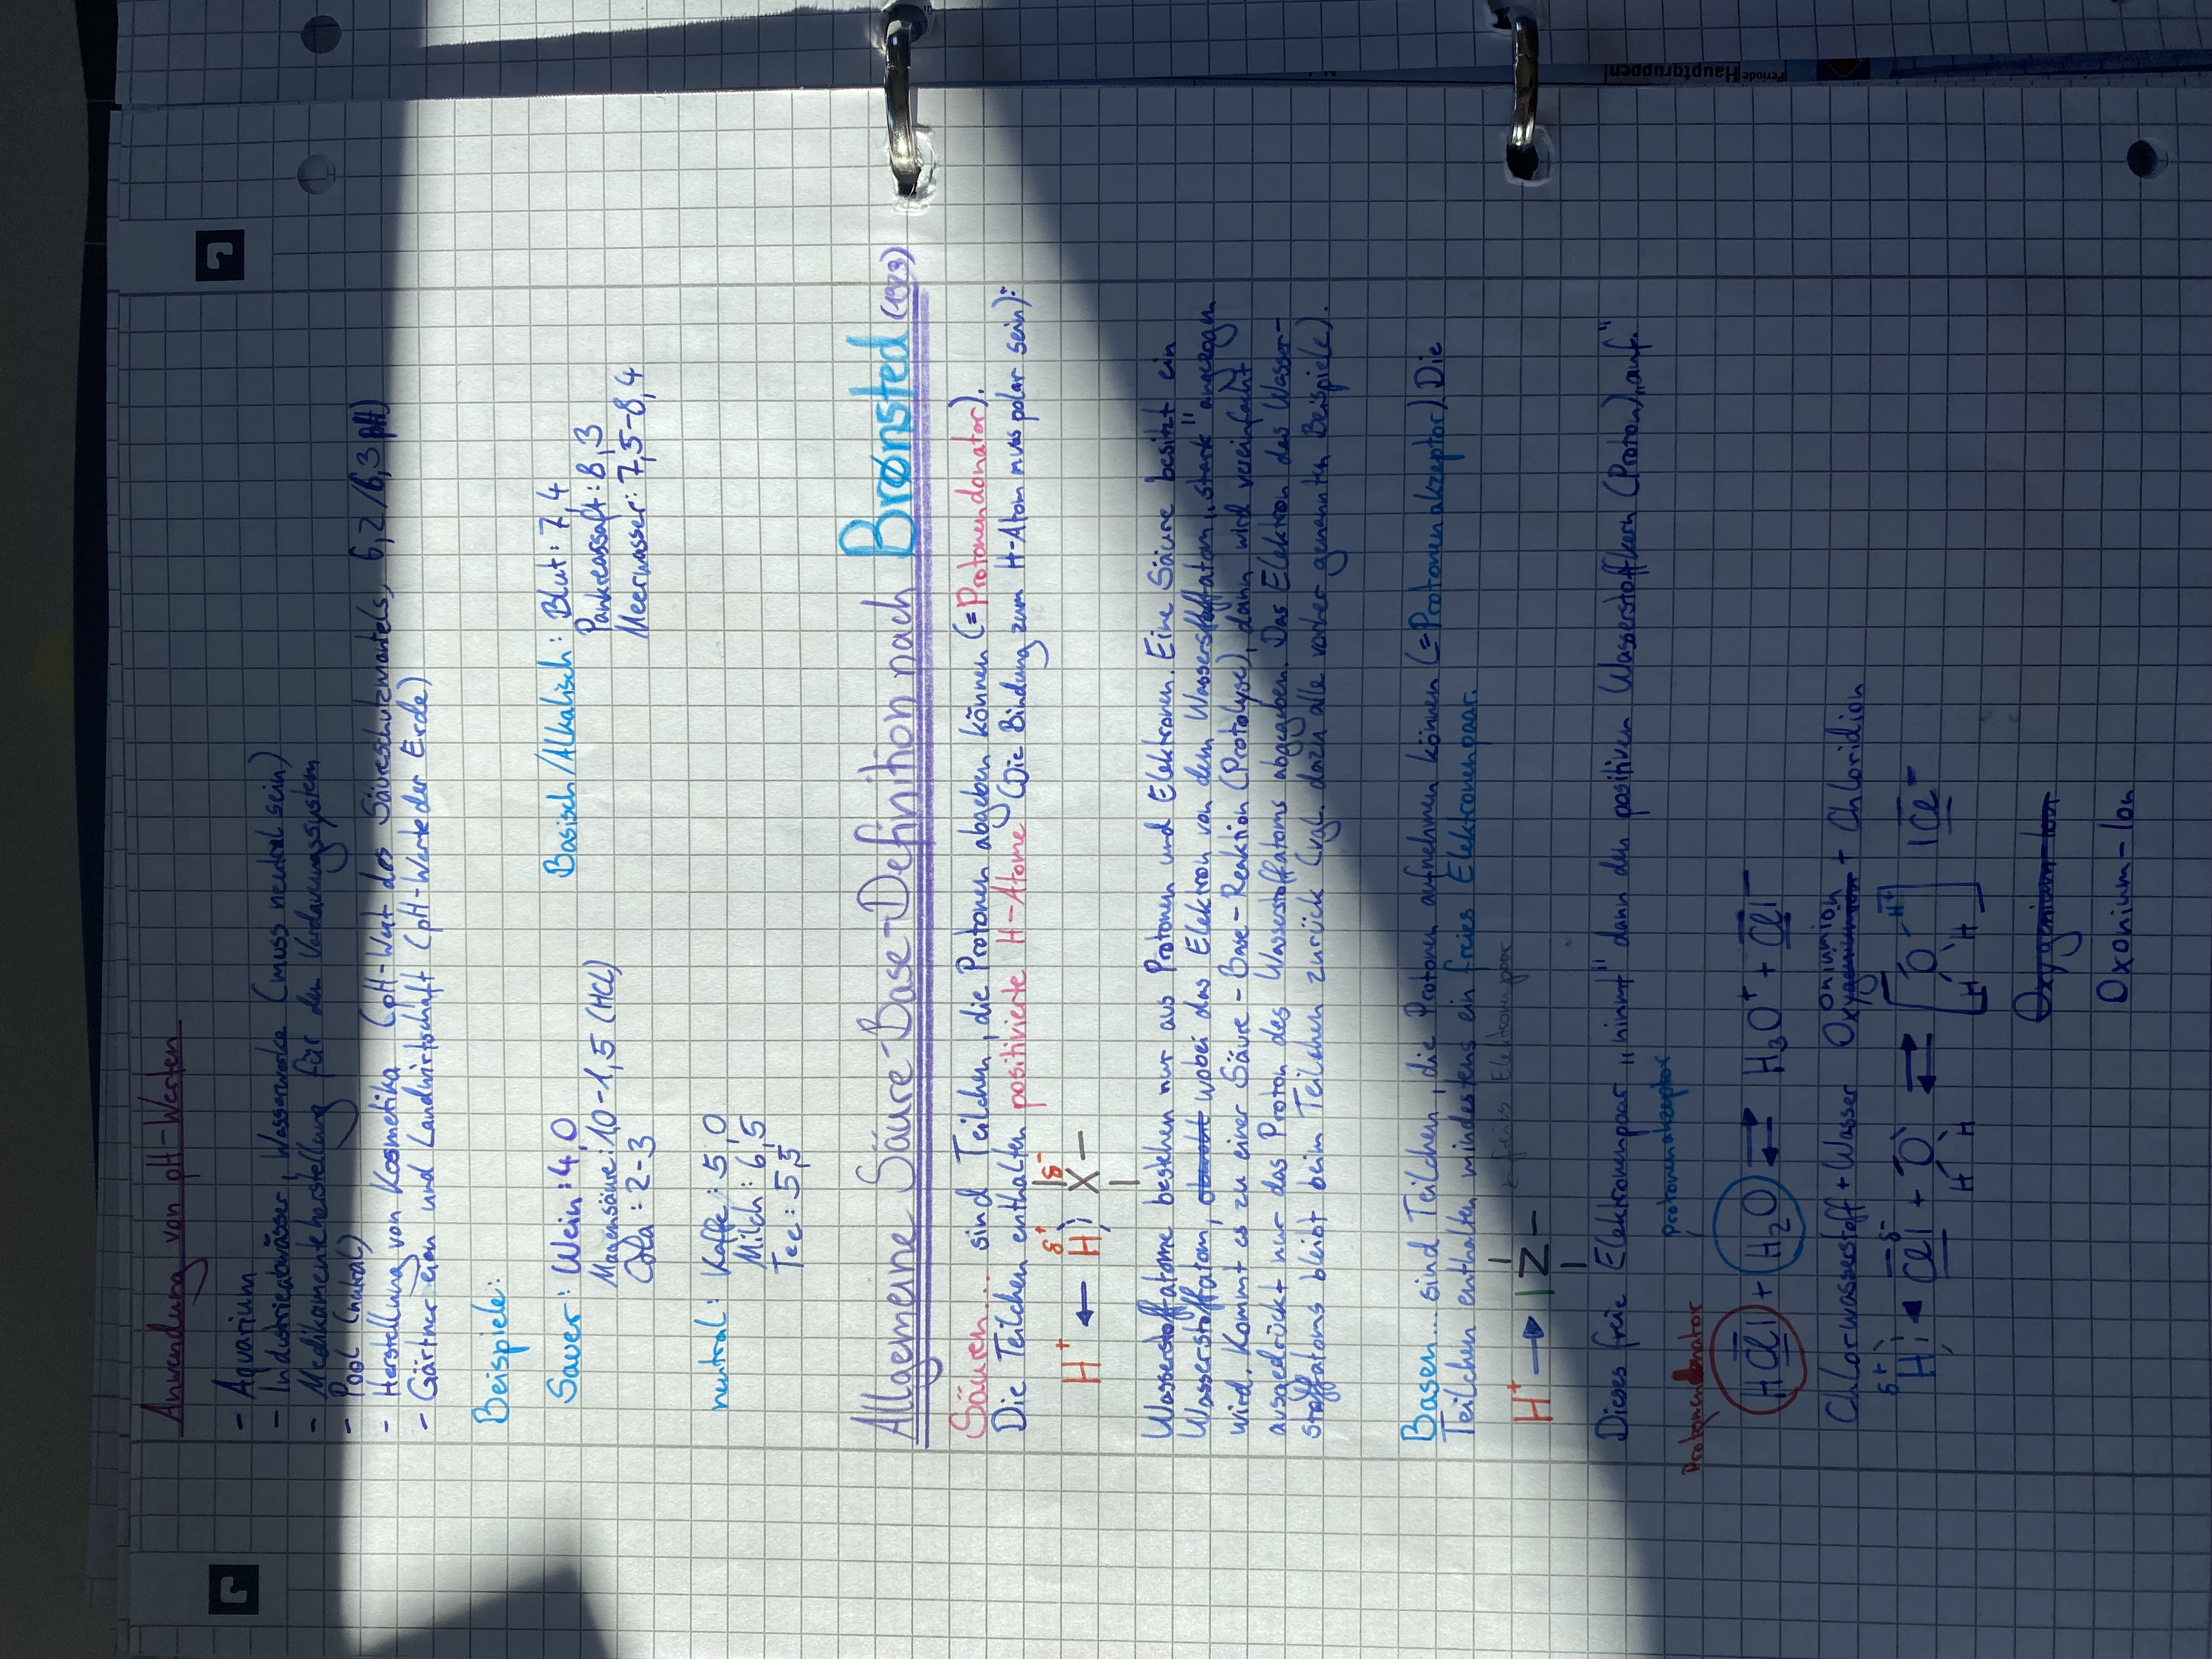 Periode Hauptgruppen
Anwendung von pH-Werten
- Aquarium
- Industrieabwässer, Wasserwerke (muss neutral sein)
- Medikamenteherstellung für den Verdauungssystem
- Pool (neutral)
- Herstellung von Kosmetika (pH-Wert des Säureschutzmantels, 6,2/6,3 pH)
- Gärtnereien und Landwirtschaft (pH-Werte der Erde)
Beispiele:
Sauer: Wein: 4,0
Magensäure: 1,0-1,5 (HCl)
Cola: 2-3
Basisch/Alkalisch: Blut: 7,4
Pankreassaft: 8,3
Meerwasser: 7,5-8,4
neutral: Kaffe: 5,0
Milch: 6,5
Tee: 5,5
Allgemeine Säure-Base-Definition nach Brønsted (1923)
Säuren... sind Teilchen, die Protonen abgeben können (=Protonendonator).
Die Teilchen enthalten positivierte H-Atome (Die Bindung zum H-Atom muss polar sein):
H⁺ ← H δ⁺ X δ⁻
Wasserstoffatome bestehen nur aus Protonen und Elektronen. Eine Säure besitzt ein
Wasserstoffatom, wobei das Elektron von dem Wasserstoffatom „stark" angezogen
wird. Kommt es zu einer Säure-Base-Reaktion (Protolyse), dann wird vereinfacht
ausgedrückt nur das Proton des Wasserstoffatoms abgegeben. Das Elektron des Wasser-
stoffatoms bleibt beim Teilchen zurück (vgl. dazu alle vorher genannten Beispiele).
Basen... sind Teilchen, die Protonen aufnehmen können (=Protonenakzeptor) Die
Teilchen enthalten mindestens ein freies Elektronenpaar.
freies Elektronenpaar
H⁺ → |Z̅-
Dieses freie Elektronenpaar „nimmt" dann den positiven Wasserstoffkern (Proton) „auf."
Protonendonator Protonenakzeptor
HCl + H₂O ⇌ H₃O⁺ + Cl⁻
Chlorwasserstoff + Wasser Oxoniumion + Chloridion
δ⁺ H Cl δ⁻ + O H H ⇌ [O H⁺ H H] Cl⁻
Oxonium-Ion